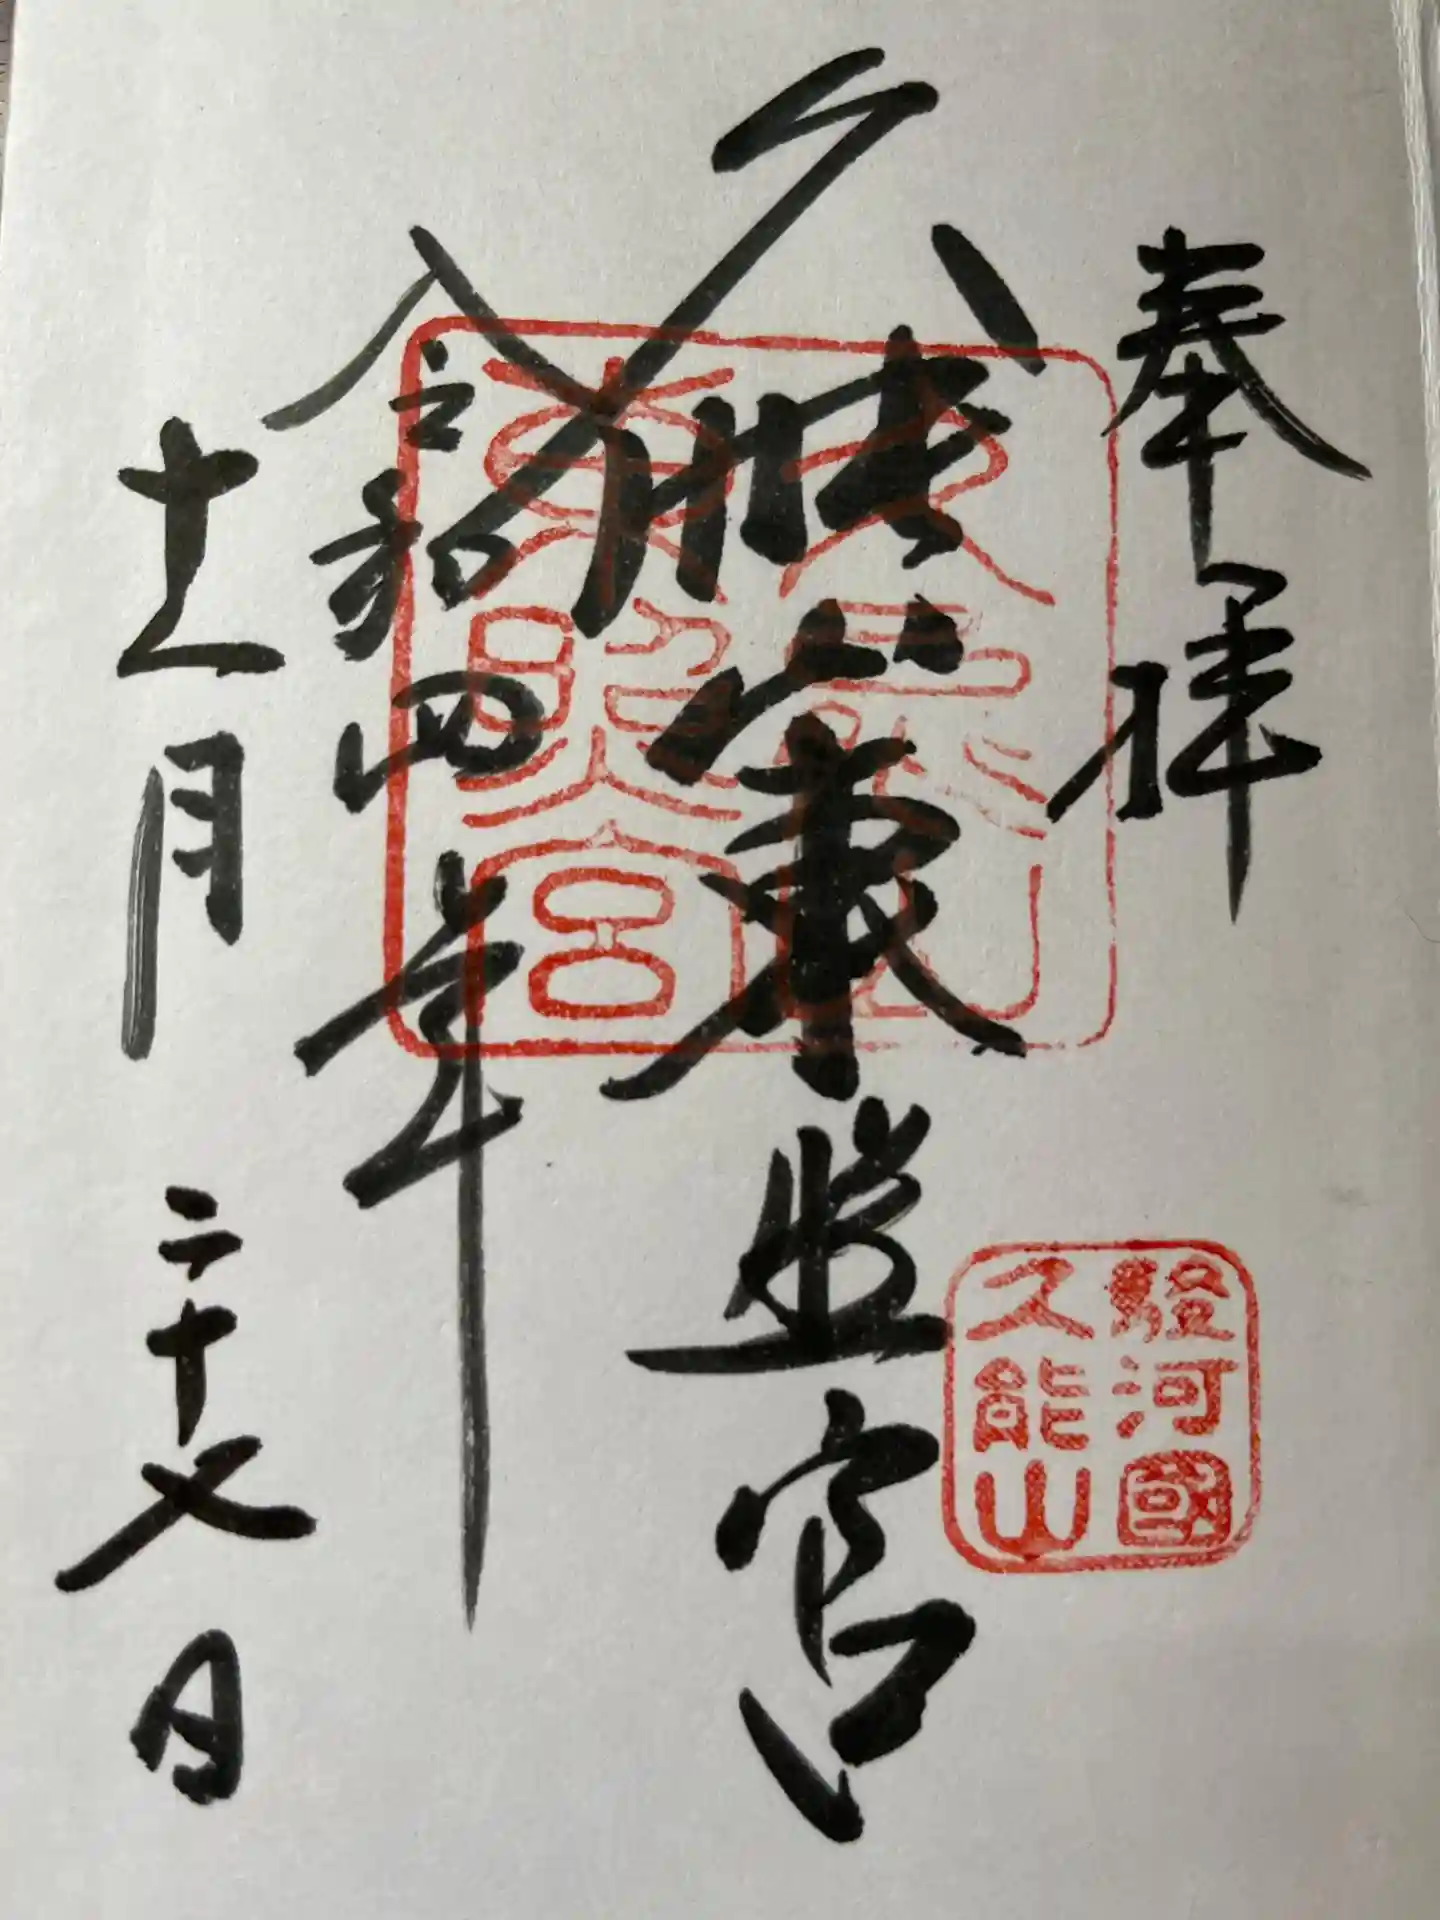 奉拝
駿河國
久能山
久能山東照宮
久能山
東照宮
令和四年
十一月二十七日